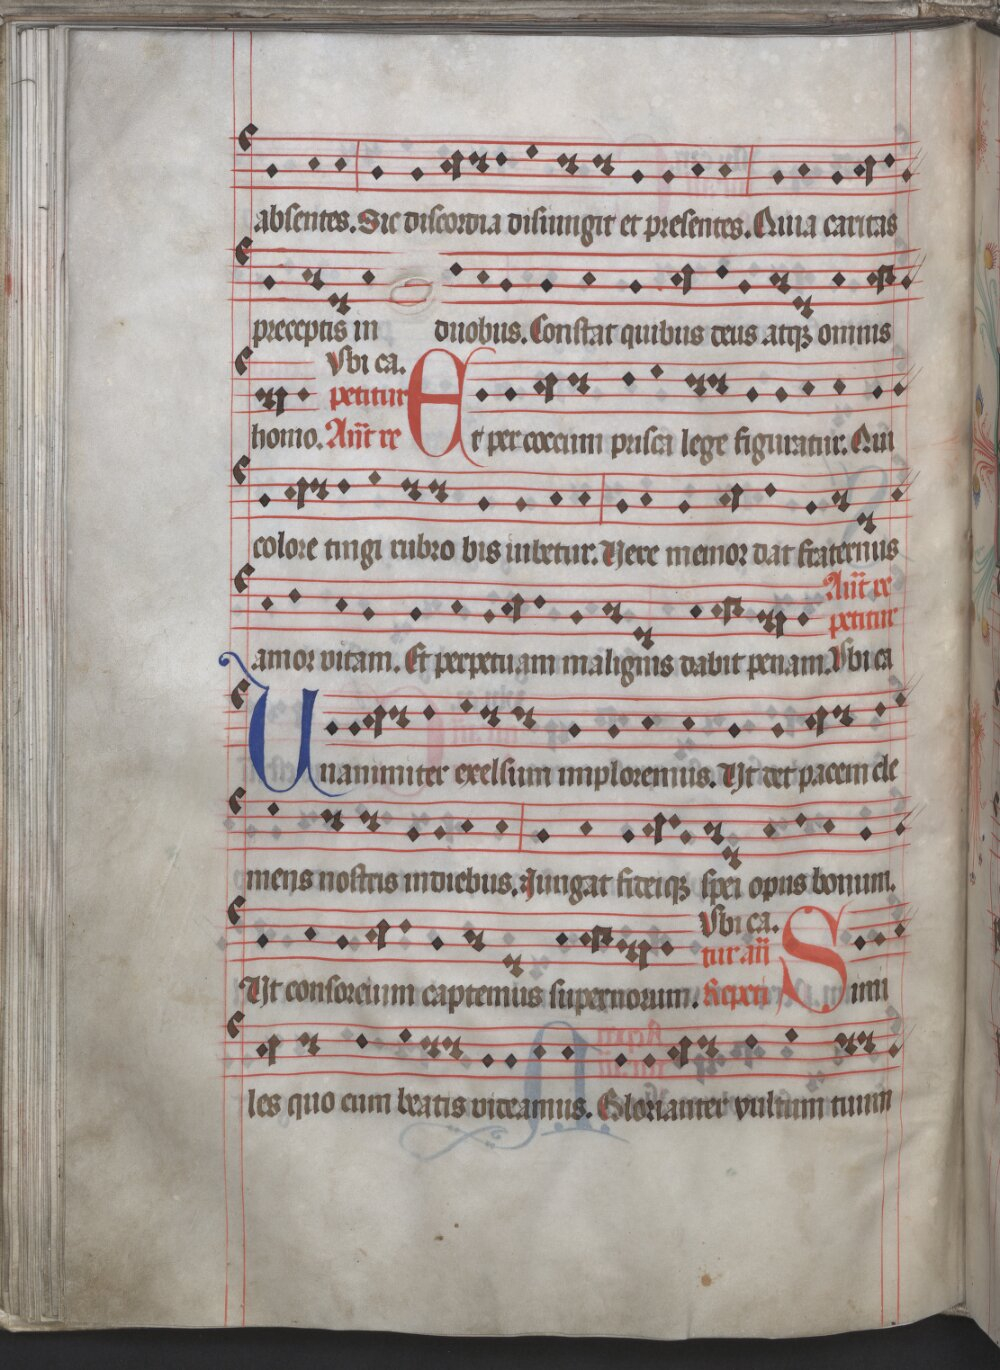 absentes. Sic discordia disiungit et presentes. Quia caritas
preceptis in duobus. Constat quibus deus atqꝫ omnis
Vbi ca.
petitur
homo. Añt re Et per coccum prisca lege figuratur. Qui
colore tingi rubro bis iubetur. Vere memor dat fraternus
Añt re
petitur
amor vitam. Et perpetuam malignis dabit penam. Vbi ca
Unanimiter exelsum imploremus. Vt det pacem cle
mens nostris indiebus. Iungat fideiqꝫ spei opus bonum.
Vbi ca.
tur añ
Vt consorcium captemus supernorum. Repeti Simi
les quo cum beatis videamus. Glorianter vultum tuum